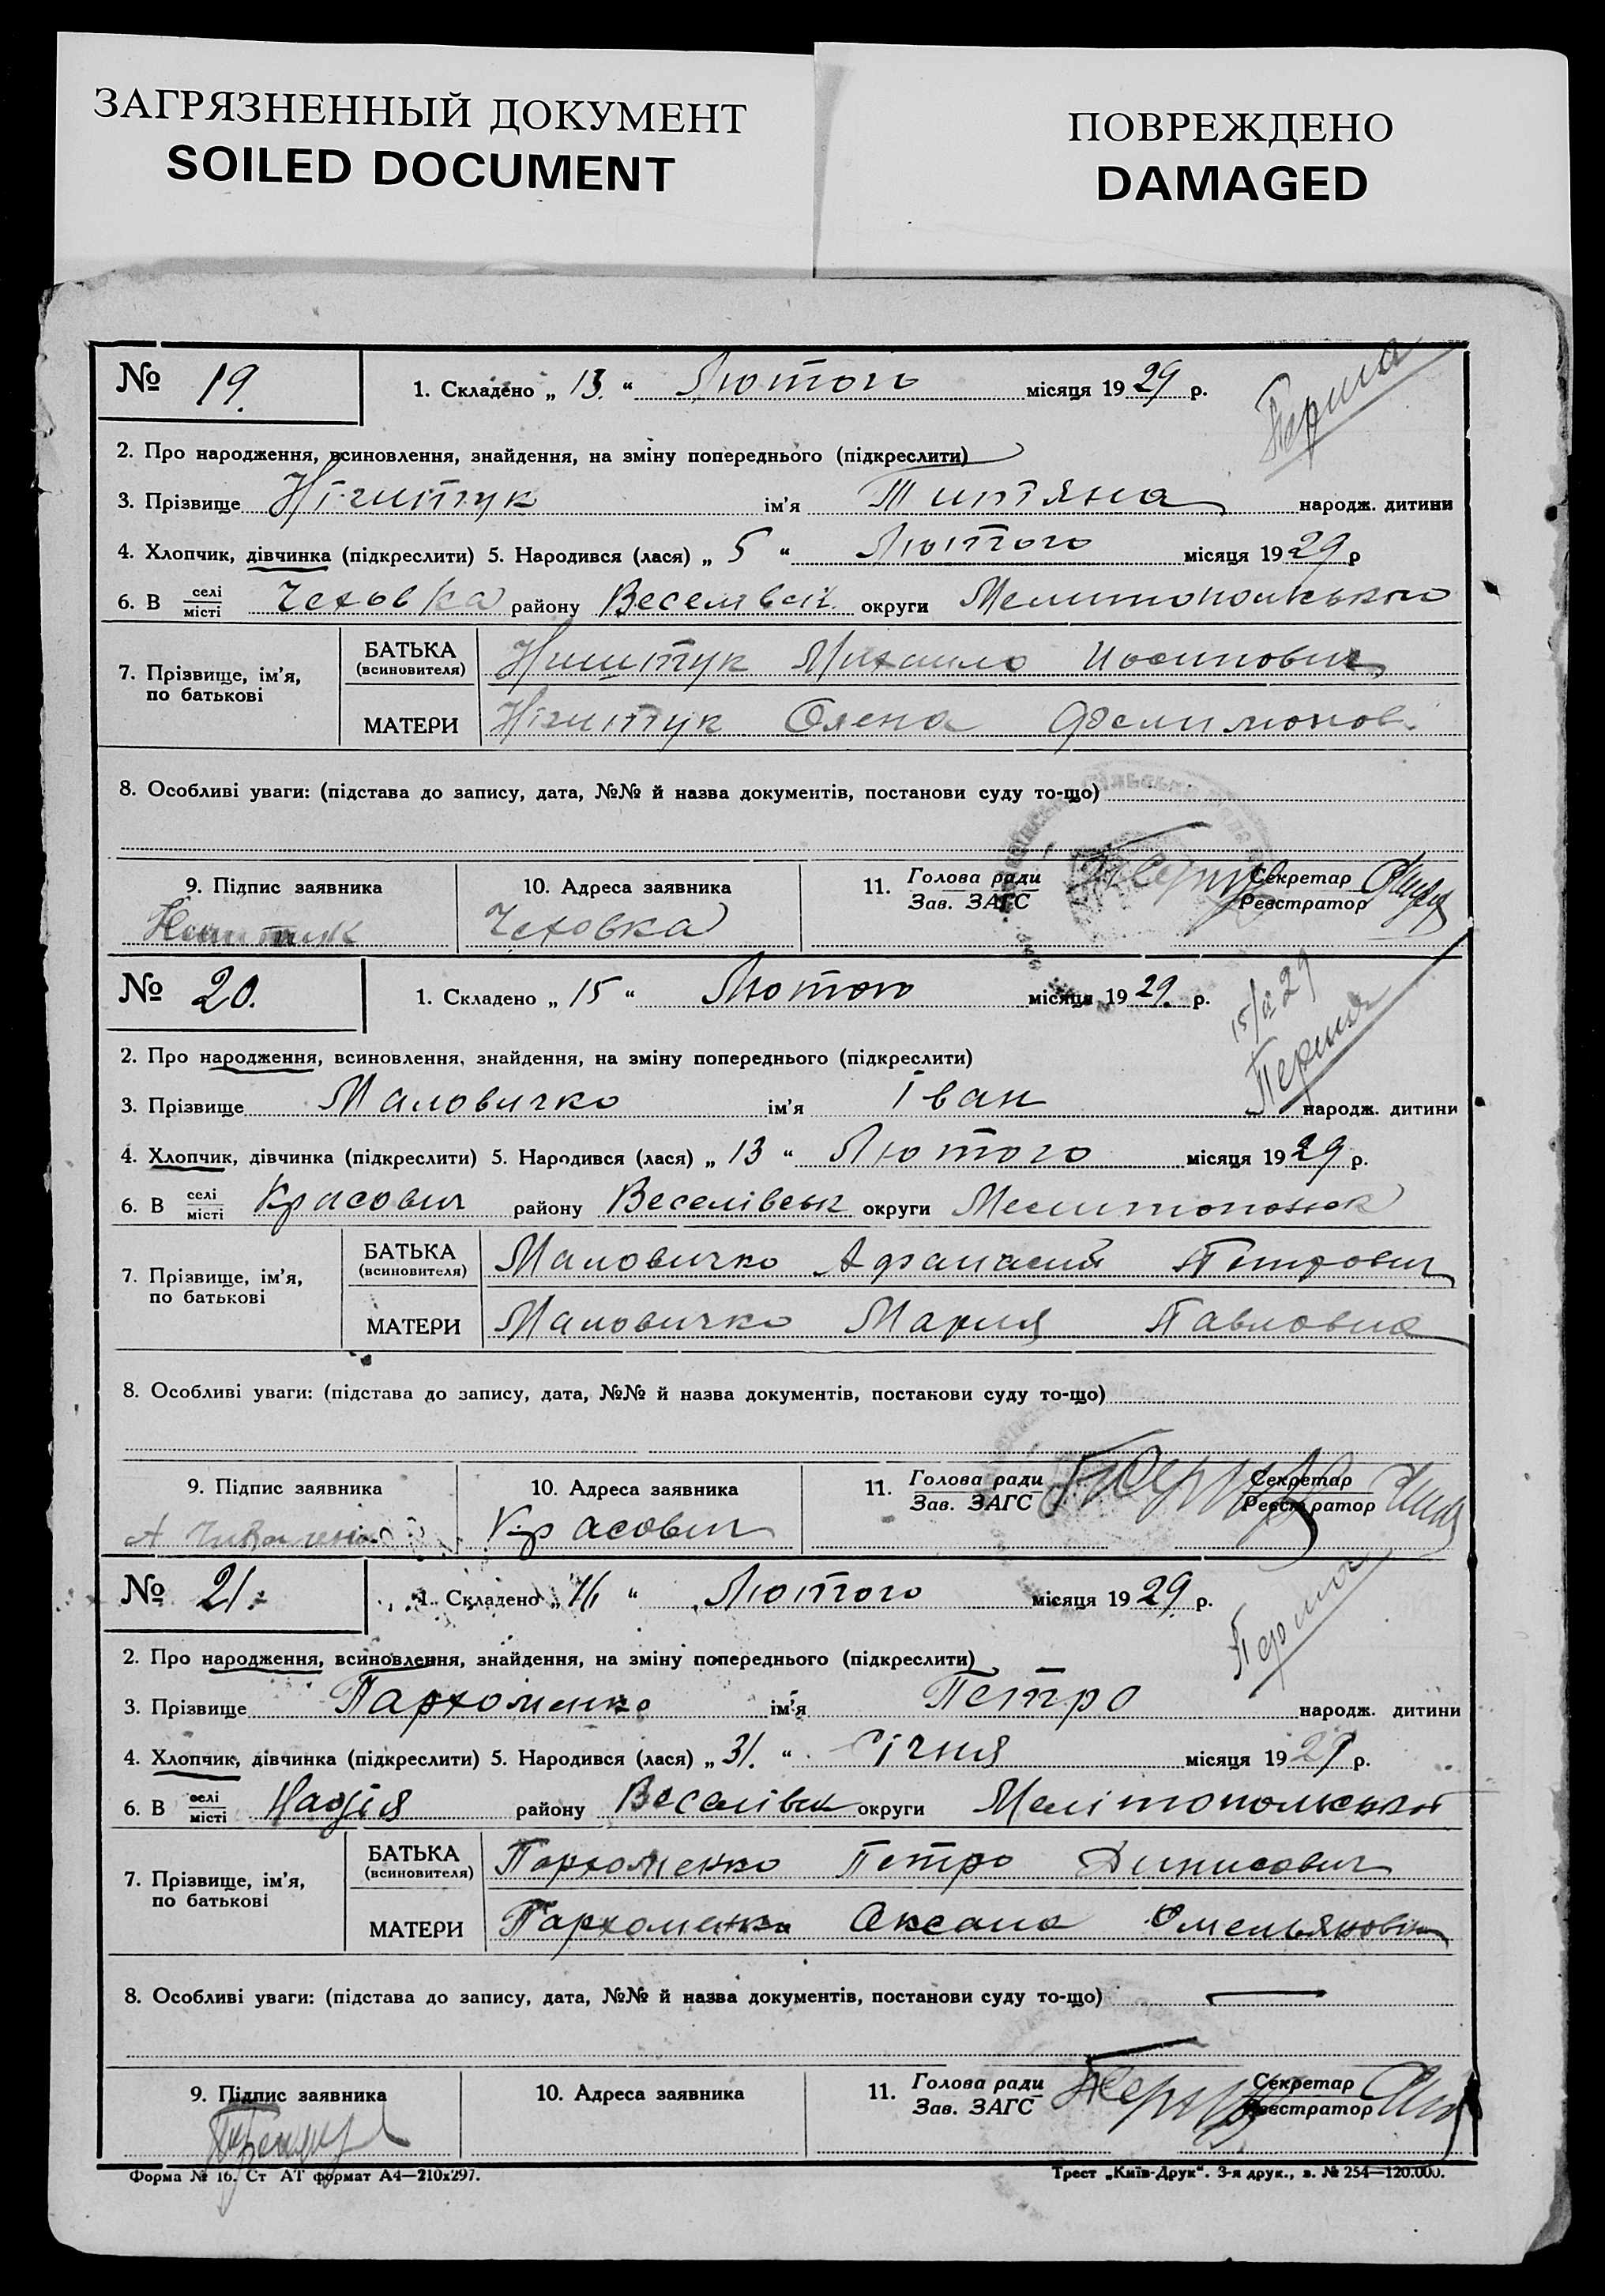 ЗАГРЯЗНЕННЫЙ ДОКУМЕНТ
SOILED DOCUMENT
ПОВРЕЖДЕНО
DAMAGED
№ 19. 1. Складено „ 13. “ Лютого місяця 1929 р.
Перша
2. Про народження, всиновлення, знайдення, на зміну попереднього (підкреслити)
3. Прізвище ім'я народж. дитини
4. Хлопчик, дівчинка (підкреслити) 5. Народився (лася) „ 5 “ Лютого місяця 1929 р
6. В селі місті Чеховка району округи
7. Прізвище, ім'я, по батькові
БАТЬКА (всиновителя) Михаило
МАТЕРИ Олена
8. Особливі уваги: (підстава до запису, дата, №№ й назва документів, постанови суду то-що)
9. Підпис заявника 10. Адреса заявника 11. Голова ради Зав. ЗАГС Секретар Реєстратор
Чеховка
№ 20. 1. Складено „ 15 “ Лютого місяця 1929. р.
15/II 29
Перша
2. Про народження, всиновлення, знайдення, на зміну попереднього (підкреслити)
3. Прізвище Маловичко ім'я Іван народж. дитини
4. Хлопчик, дівчинка (підкреслити) 5. Народився (лася) „ 13 “ Лютого місяця 1929 р.
6. В селі місті Красович району Веселівськ округи
7. Прізвище, ім'я, по батькові
БАТЬКА (всиновителя) Маловичко Афанасий Петрович
МАТЕРИ Маловичко Мария Павловна
8. Особливі уваги: (підстава до запису, дата, №№ й назва документів, постанови суду то-що)
9. Підпис заявника 10. Адреса заявника 11. Голова ради Зав. ЗАГС Секретар Реєстратор
Красович
№ 21. 1. Складено „ “ Лютого місяця 1929. р.
Перша
2. Про народження, всиновлення, знайдення, на зміну попереднього (підкреслити)
3. Прізвище Пархоменко ім'я Петро народж. дитини
4. Хлопчик, дівчинка (підкреслити) 5. Народився (лася) „ 31. “ Січня місяця 1929 р.
6. В селі місті Надія району Веселівськ округи Мелітопольської
7. Прізвище, ім'я, по батькові
БАТЬКА (всиновителя) Пархоменко Петро Динисович
МАТЕРИ Пархоменко Оксана
8. Особливі уваги: (підстава до запису, дата, №№ й назва документів, постанови суду то-що) —
9. Підпис заявника 10. Адреса заявника 11. Голова ради Зав. ЗАГС Секретар Реєстратор
Форма № 16. Ст АТ формат А4—210х297.
Трест „Київ-Друк“. 3-я друк., з. № 254—120.000.